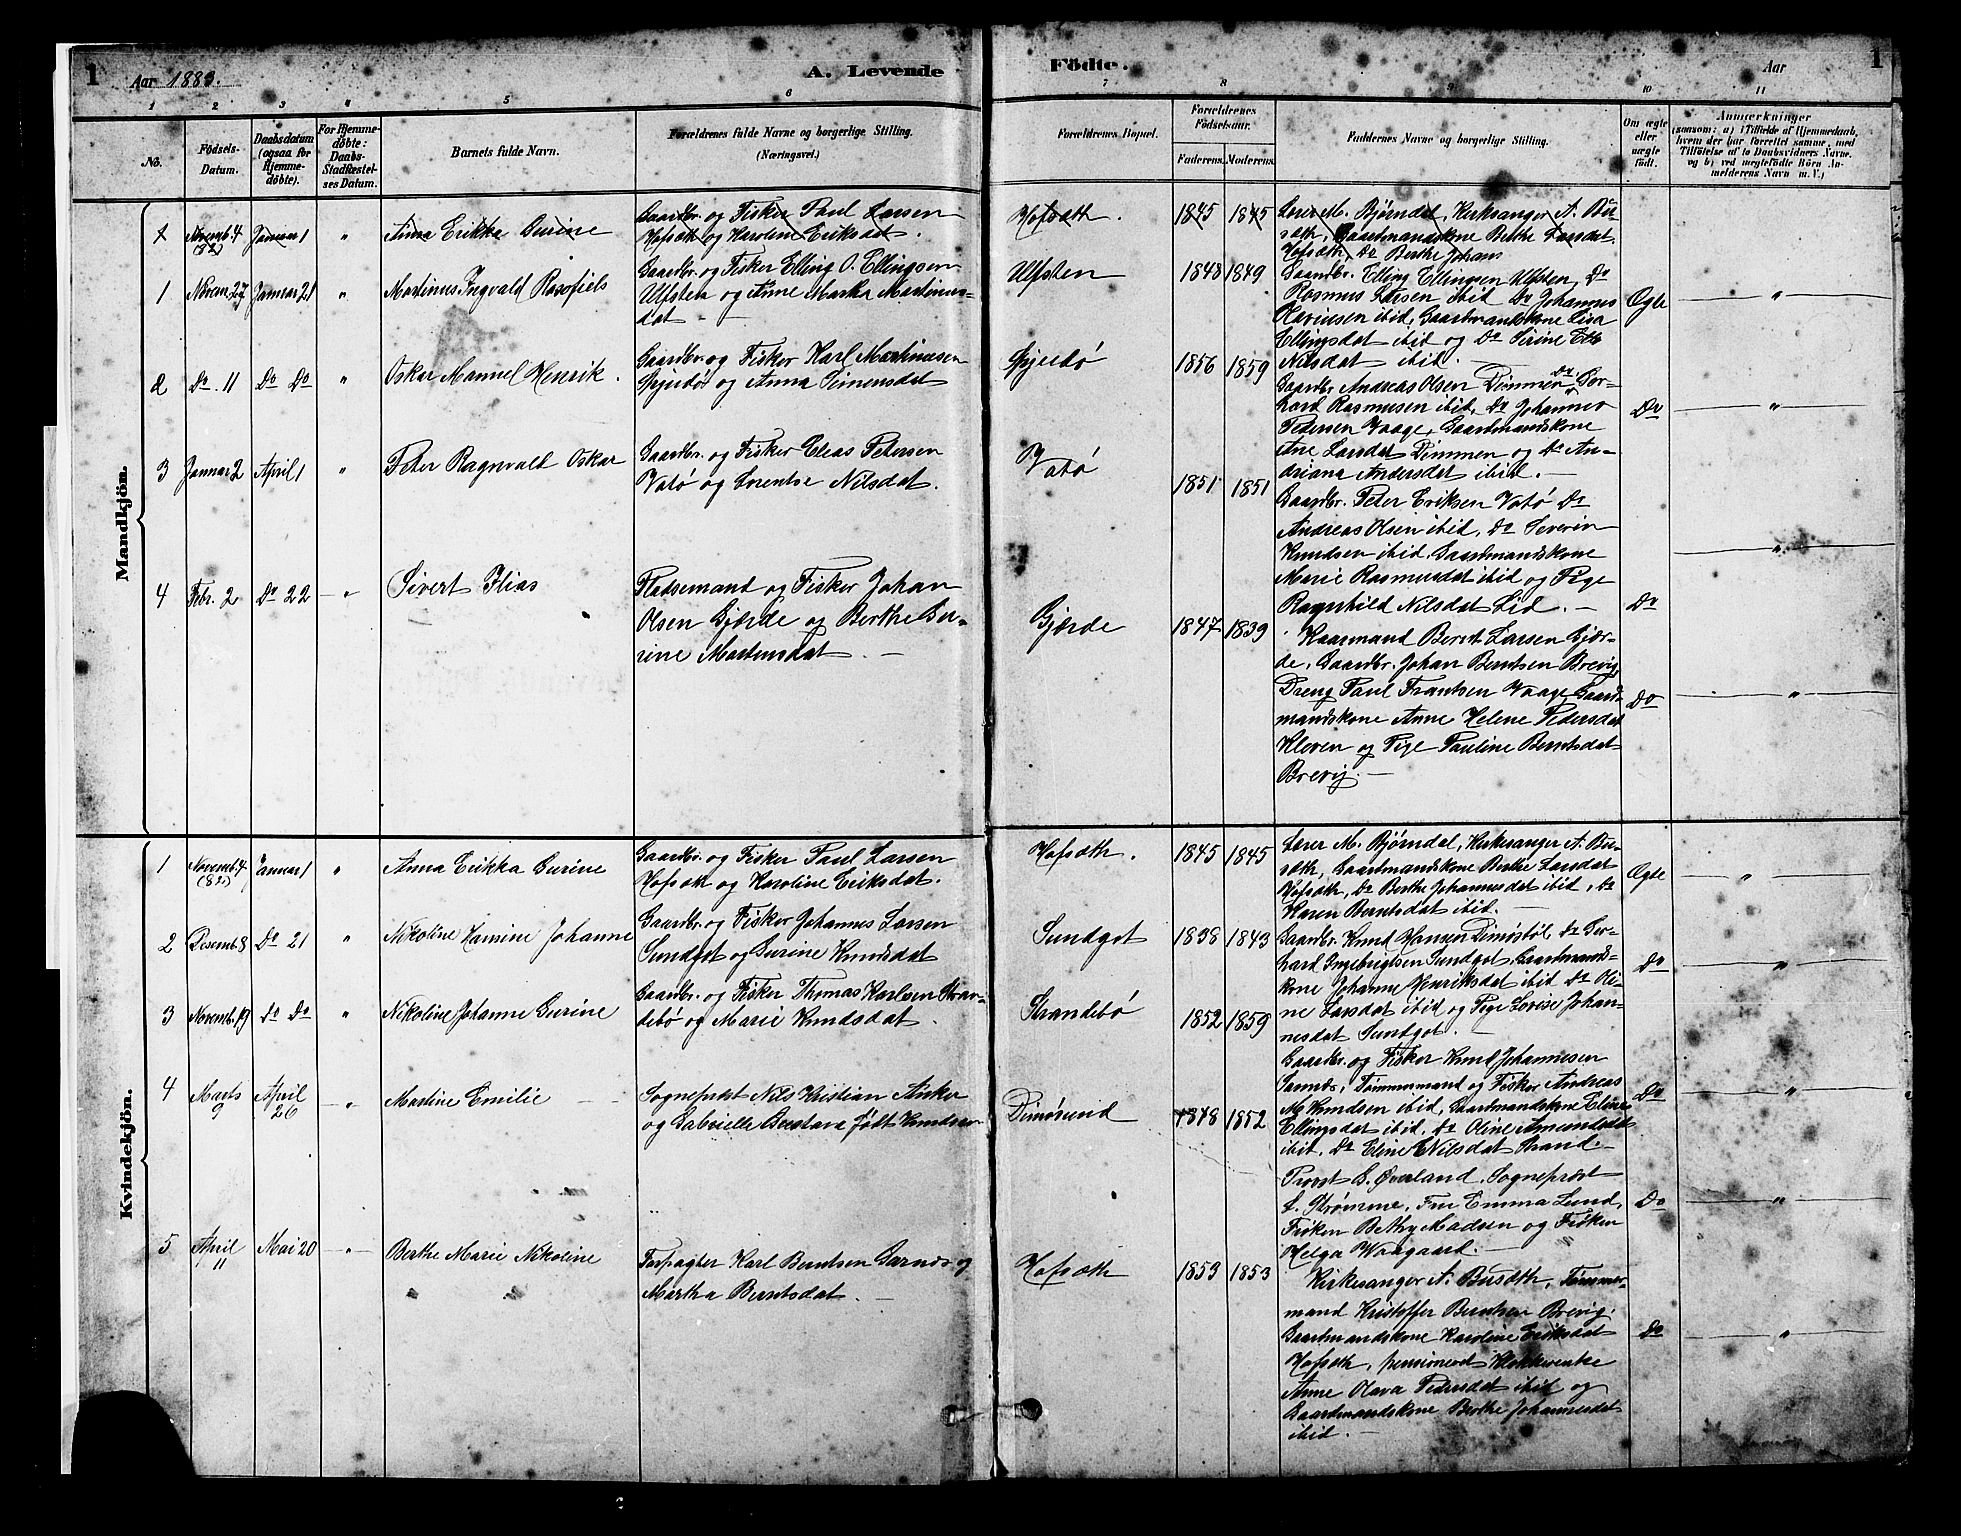 1
Aar 1883.
A. Levende
Födte.
Aar
1
1 2 3 4 5 6 7 8 9 10 11
No.
Födsels-
Datum.
Daabsdatum
(ogsaa for
Hjemme-
döbte).
For Hjemme-
döbte:
Daabs-
Stadfæstel-
ses Datum.
Barnets fulde Navn.
Forældrenes fulde Navne og borgerlige Stilling.
(Næringsvei.)
Forældrenes Bopæl.
Forældrenes
Födselsaar.
Faderens. Moderens.
Faddernes Navne og borgerlige Stilling.
Om ægte
eller
uægte
födt.
Anmærkninger
(saasom: a) i Tilfælde af Hjemmedaab,
hvem der har forrettet samme, med
Tilföielse af to Daabsvidners Navne,
og b) ved uægtefödte Börn An-
melderens Navn m. V.)
Mandkjön.
1 Novemb. 4 (82) Januar 1 " Anna Erikka Gurine
Gaardbr. og Fisker Paul Larsen
Hofsæth og Karoline Eriksdat.
Hofsæth. 1845 1845
Lærer M. Bjørndal, Kirkesanger A. Bu-
sæth, Gaardmandskone Berthe Larsdat.
Hofsæth, Do Berthe Johans
1 Novem 27 Januar 21 " Martinus Ingvald
Gaardbr. og Fisker Elling O. Ellingsen
Ulfsten og Anne Marka Martinus-
dat
Ulfsten 1848 1849
Gaardbr. Elling Ellingsen Ulfsten, Do
Rasmus Larsen ibid Do Johannes
ibid, Gaardmandskone Lisa
Ellingsdat ibid og Do Sirine
Nilsdat ibid.
Ægte "
2 Do. 11 Do Do " Oskar Manuel Henrik.
Gaardbr. og Fisker Karl Martinusen
og Anna Simensdat
1856 1859
Gaardbr Andreas Olsen Dimmen, Do Ger-
hard Rasmusen ibid, Do Johannes
Pedersen Vaage, Gaardmandskone
Ane Larsdat Dimmen og Do An-
driana Andersdat ibid.
Do "
3 Januar 2 April 1 " Peter Ragnvald Oskar
Gaardbr. og Fisker Elias Petersen
Vatø og Lorentse Nilsdat.
Vatø 1851 1851
Gaardbr. Peter Eriksen Vatø Do
Andreas Olsen ibid, Do Severin
Knudsen ibid, Gaardmandskone
Marie Rasmusdat ibid og Pige
Ragnhild Nilsdat Lid.
Do "
4 Febr. 2 Do 22 " Sivert Ilias
Pladsemand og Fisker Johan
Olsen Gjærde og Berthe Gu-
rine Martinsdat.
Gjærde 1847 1839
Haarmand Bernt Larsen Gjær-
de, Gaardbr. Johan Berntsen Brevig,
Dreng Paul Frantsen Vaage, Gaard-
mandskone Anne Helene Pedersdat
Kleven og Pige Pauline Berntsdat
Brevig.
Do "
Kvindekjön.
1 Novemb. 4 (82) Januar 1 " Anna Erikka Gurine
Gaardbr. og Fisker Paul Larsen
Hofsæth og Karoline Eriksdat.
Hofsæth. 1845 1845
Lærer M. Bjørndal, Kirkesanger A. Bu-
sæth, Gaardmandskone Berthe Larsdat
Hofsæth, Do Berthe Johannesdat ibid, Do
Karen Berntsdat ibid.
Ægte "
2 Desemb. 8 Do 21 " Nikoline Hamine Johanne
Gaardbr. og Fisker Johannes Larsen
Sundgot og Gurine Knudsdat
Sundgot 1838 1843
Gaardbr. Knud Hansen Dimøstøl, Do Ger-
hard Ingebrigtsen Sundgot, Gaardmands-
kone Johanne Henriksdat ibid Do Oli-
ne Larsdat ibid og Pige Lovise Johan-
nesdat Sundgot.
Do "
3 Novemb. 19 Do Do " Nikoline Johanne Gurine
Gaardbr. og Fisker Thomas Karlsen Stran-
debø og Marie Knudsdat.
Strandebø 1852 1859
Gaardbr. og Fisker Knud Johannesen
Garnæs, Tømmermand og Fisker Andreas
M. Knudsen ibid, Gaardmandskone Eline
Ellingsdat ibid, Do Oline Amundsdat
ibid, Do Eline Nilsdat Strand.
Do "
4 Marts 9 April 26 " Martine Emilie
Sogneprest Nils Kristian Anker
og Gabrielle Gustava født Knudsen
Dimøsund 1848 1852
Provst S. Øverland, Sogneprest
L. Strømme, Fru Emma Lund,
Frøken Bethy Madsen og Frøken
Helga Waagaard.
Do "
5 April 11 Mai 20 " Berthe Marie Nikoline
Forpagter Karl Berntsen Garnæs og
Martha Berntsdat.
Hofsæth 1853 1853
Kirkesanger A. Busæth, Tømmer-
mand Kristoffer Berntsen Brevig,
Gaardmandskone Karoline Eriksdat
Hofsæth, pensioneret Klokkerenke
Anne Olava Pedersdat ibid og
Gaardmandskone Berthe Johannesdat
ibid.
Do "